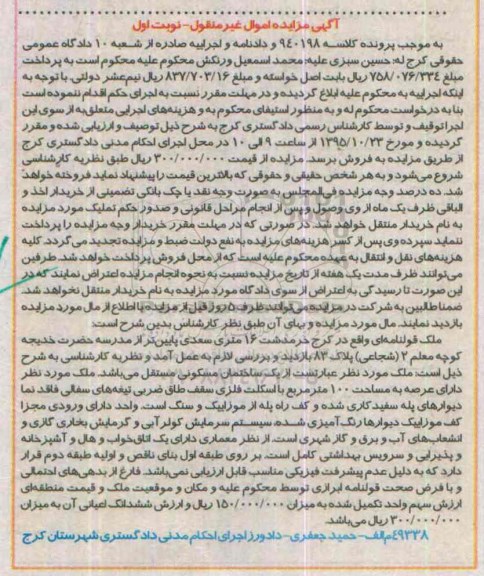 آگهی مزایده اموال غیرمنقول- نوبت اول
به موجب پرونده کلاسه ۹٤۰۱۹۸ و دادنامه و اجرائیه صادره از شعبه ۱۰ دادگاه عمومی
حقوقی کرج له: حسین سبزی علیه: محمد اسمعیل ورنکش محکوم علیه محکوم است به پرداخت
مبلغ ۷۵۸/۰۷۶/۳۳٤ ریال بابت اصل خواسته و مبلغ ۸۳۷/۷۰۳/۱۶ ریال نیم‌عشر دولتی. با توجه به
اینکه اجراییه به محکوم علیه ابلاغ گردیده و در مهلت مقرر نسبت به اجرای حکم اقدام ننموده است
بنا به درخواست محکوم له و به منظور استیفای محکوم به و هزینه‌های اجرایی متعلق‌به از سوی این
اجرا توقیف و توسط کارشناس رسمی دادگستری کرج به شرح ذیل توصیف و ارزیابی شده و مقرر
گردیده و مورخ ۱۳۹۵/۱۰/۲۳ از ساعت ۹ الی ۱۰ در محل اجرای احکام مدنی دادگستری کرج
از طریق مزایده به فروش برسد. مزایده از قیمت ۳۰۰/۰۰۰/۰۰۰ ریال طبق نظریه کارشناسی
شروع می‌شود و به هر شخص حقیقی و حقوقی که بالاترین قیمت را پیشنهاد نماید فروخته خواهد
شد. ده درصد وجه مزایده فی‌المجلس به صورت وجه نقد یا چک بانکی تضمینی از خریدار اخذ و
الباقی ظرف یک ماه از وی وصول و پس از انجام مراحل قانونی و صدور حکم تملیک مورد مزایده
به نام خریدار منتقل خواهد شد. در صورتی که در مهلت مقرر خریدار وجه مزایده را پرداخت
ننماید سپرده وی پس از کسر هزینه‌های مزایده به نفع دولت ضبط و مزایده تجدید می گردد. کلیه
هزینه‌های نقل و انتقال به عهده محکوم علیه است که از محل فروش پرداخت خواهد شد. طرفین
می‌توانند ظرف مدت یک هفته از تاریخ مزایده نسبت به نحوه انجام مزایده اعتراض نمایند که در
این صورت تا رسیدگی به اعتراض از سوی دادگاه مورد مزایده به نام خریدار منتقل نخواهد شد.
ضمنا طالبین به شرکت در مزایده می‌توانند ظرف ۵ روز قبل از مزایده با اطلاع از مال مورد مزایده
بازدید نمایند. مال مورد مزایده و بهای آن طبق نظر کارشناس بدین شرح است:
ملک قولنامه‌ای واقع در کرج خرمدشت ۱۶ متری سعدی پایین‌تر از مدرسه حضرت خدیجه
کوچه معلم ۲ (شجاعی) پلاک ۸۳ بازدید و بررسی لازم به عمل آمد و نظریه کارشناسی به شرح
ذیل است: ملک مورد نظر عبارتست از یک ساختمان مسکونی مستقل می‌باشد. ملک مورد نظر
دارای عرصه به مساحت ۱۰۰ متر مربع با اسکلت فلزی سقف طاق ضربی تیغه‌های سفالی فاقد نما
دیوارهای پله سفید کاری شده و کف راه پله از موزاییک و سنگ است. واحد دارای ورودی مجزا
کف موزاییک دیوارها رنگ‌آمیزی شده، سیستم سرمایش کولر آبی و گرمایش بخاری گازی و
انشعاب‌های آب و برق و گاز شهری است. از نظر معماری دارای یک اتاق‌خواب و هال و آشپزخانه
و پذیرایی و سرویس بهداشتی کامل است. بر روی طبقه اول بنای ناقص و اولیه طبقه دوم قرار
دارد که به دلیل عدم پیشرفت فیزیکی مناسب قابل ارزیابی نمی‌باشد. فارغ از بدهی‌های احتمالی
و با فرض صحت قولنامه ابرازی توسط محکوم علیه و مکان و موقعیت ملک و قیمت منطقه‌ای
ارزش سهم واحد تکمیل شده به میزان ۱۵۰/۰۰۰/۰۰۰ ریال و ارزش ششدانگ اعیانی آن به میزان
۳۰۰/۰۰۰/۰۰۰ ریال می‌باشد.
٤۹۳۳۸م‌الف- حمید جعفری- دادورز اجرای احکام مدنی دادگستری شهرستان کرج